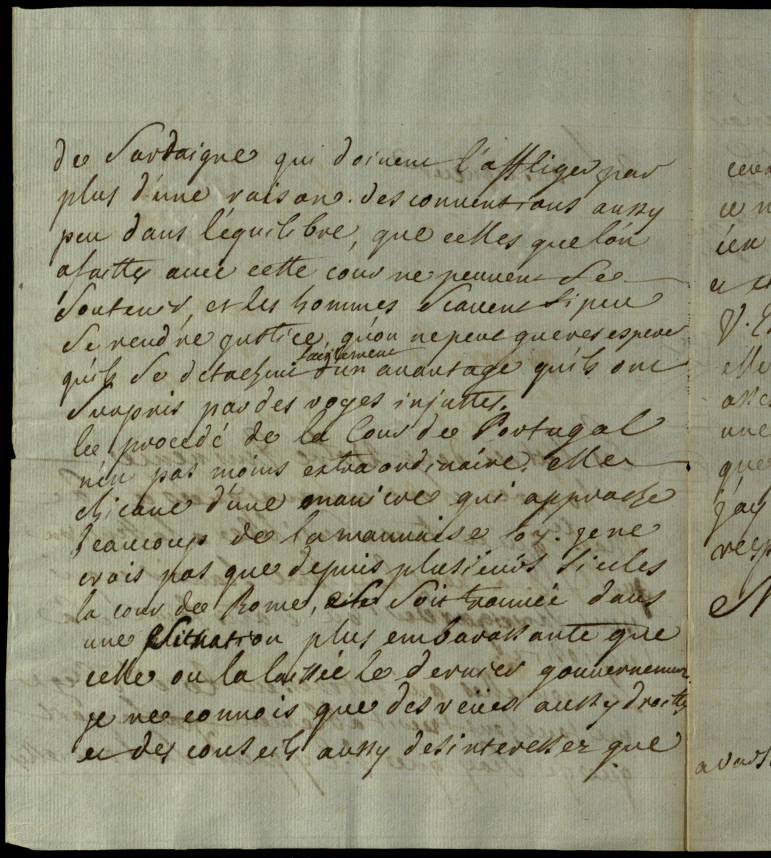 de Sardaigne qui doivent l'affliger par
plus d'une raison. des conventions aussy
peu dans l'équilibre, que celles que l'on
a faittes avec cette cour ne peuvent se
soutenir, et les hommes scavent si peu
se rendre justice, qu'on ne peut gueres esperer
qu'ils se detachent facilement d'un avantage qu'ils ont
surpris par des voyes injustes.
le procedé de la Cour de Portugal
n'en pas moins extraordinaire. elle
chicane d'une maniere qui approche
beaucoup de la mauvaise foy. je ne
crois pas que depuis plusieurs siecles
la cour de Rome, se soit trouvée dans
une situation plus embarassante que
celle ou la laissée le dernier gouvernement.
je ne connois que des veües aussy droittes
et des conseils aussy desinteressez que
V. E
elle
une
que
j'ay
resp